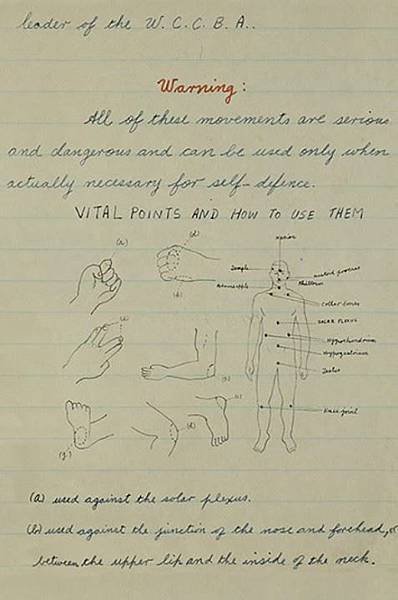 leader of the W. C. C. B. A..
Warning:
All of these movements are serious
and dangerous and can be used only when
actually necessary for self-defence.
VITAL POINTS AND HOW TO USE THEM
(a)
(d)
Temple
mastoid process
Adamsapple
Philtrum
(b)
Collar bones
SOLAR PLEXUS
Hypochondrium
Hypogastrium
Testes
Knee joint
(g)
(a) used against the solar plexus.
(b) used against the junction of the nose and forehead, or
between the upper lip and the inside of the neck.